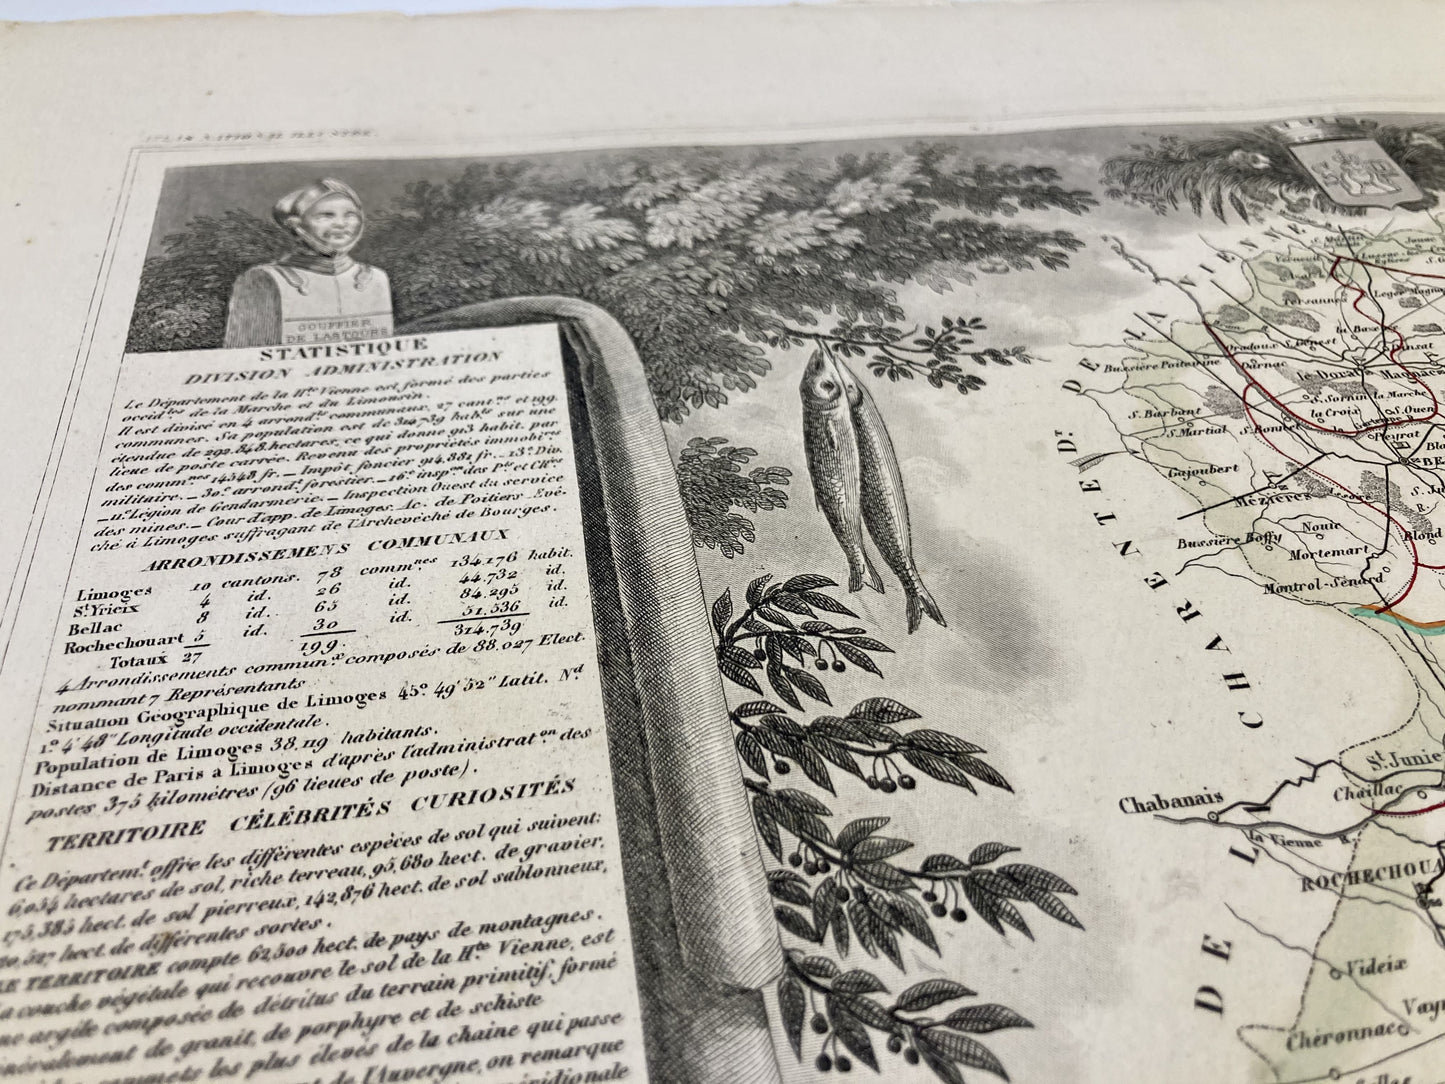 ATLAS NATIONAL ILLUSTRÉ
GOUFFIER
DE LASTOURS
STATISTIQUE
DIVISION ADMINISTRATION
Le Département de la H.te Vienne est formé des parties
occid.les de la Marche et du Limousin.
Il est divisé en 4 arrond.ts communaux, 27 cant.ns et 199
communes. Sa population est de 314,739 hab.ts sur une
étendue de 292,848 hectares, ce qui donne 913 habit. par
lieue de poste carrée. Revenu des propriétés immobi.res
des comm.nes 14548 fr. _ Impôt foncier 914,881 fr. _ 13.e Div.
militaire. _ 30.e arrond.t forestier. _ 16.e insp.on des P.ts et Ch.ées
_ 11.e Légion de Gendarmerie. _ Inspection Ouest du service
des mines. _ Cour d'app. de Limoges. Ac. de Poitiers. Evê-
ché à Limoges suffragant de l'Archevêché de Bourges.
ARRONDISSEMENS COMMUNAUX
Limoges 10 cantons. 78 comm.nes 134,176 habit.
S.t Yrieix 4 id. 26 id. 44,732 id.
Bellac 8 id. 65 id. 84,295 id.
Rochechouart 5 id. 30 id. 51,536 id.
Totaux 27 199. 314,739
4 Arrondissements commun.x composés de 88,027 Elect.
nommant 7 Représentants
Situation Géographique de Limoges 45.° 49' 52" Latit. N.d
1.° 4' 48" Longitude occidentale.
Population de Limoges 38,119 habitants.
Distance de Paris à Limoges d'après l'administrat.on des
postes 375 kilomètres (96 lieues de poste).
TERRITOIRE CÉLÉBRITÉS CURIOSITÉS
Ce Départem.t offre les différentes espèces de sol qui suivent:
6,034 hectares de sol, riche terreau, 95,680 hect. de gravier,
175,385 hect. de sol pierreux, 142,876 hect. de sol sablonneux,
hect. de différentes sortes.
LE TERRITOIRE compte 62,500 hect. de pays de montagnes.
La couche végétale qui recouvre le sol de la H.te Vienne, est
une argile composée de détritus du terrain primitif, formé
généralement de granit, de porphyre et de schiste
sommets les plus élevés de la chaîne qui passe
de l'Auvergne, on remarque
méridionale
DE LA VIENNE
Verneuil
Lussac-les-
Eglises
Jouac
Tersannes
Magna
la Bazeu
Oradoux S. Genest
Dinsat
Bussière Poitevine
Darnac
le Dorat
Magnac
S. Sornin la Marche
S. Barbant
la Croix
S. Ouen
S. Martial
S. Bonnet
Peyrat
Bla
BE
Gajoubert
Mézières
S. Ju
Nouic
Blond
Bussière Boffy
Mortemart
Montrol-Sénard
DÉP.T DE LA CHARENTE
S.t Junie
Chabanais
Chaillac
la Vienne R.
ROCHECHOUA
Videix
Vayr
Chéronnac